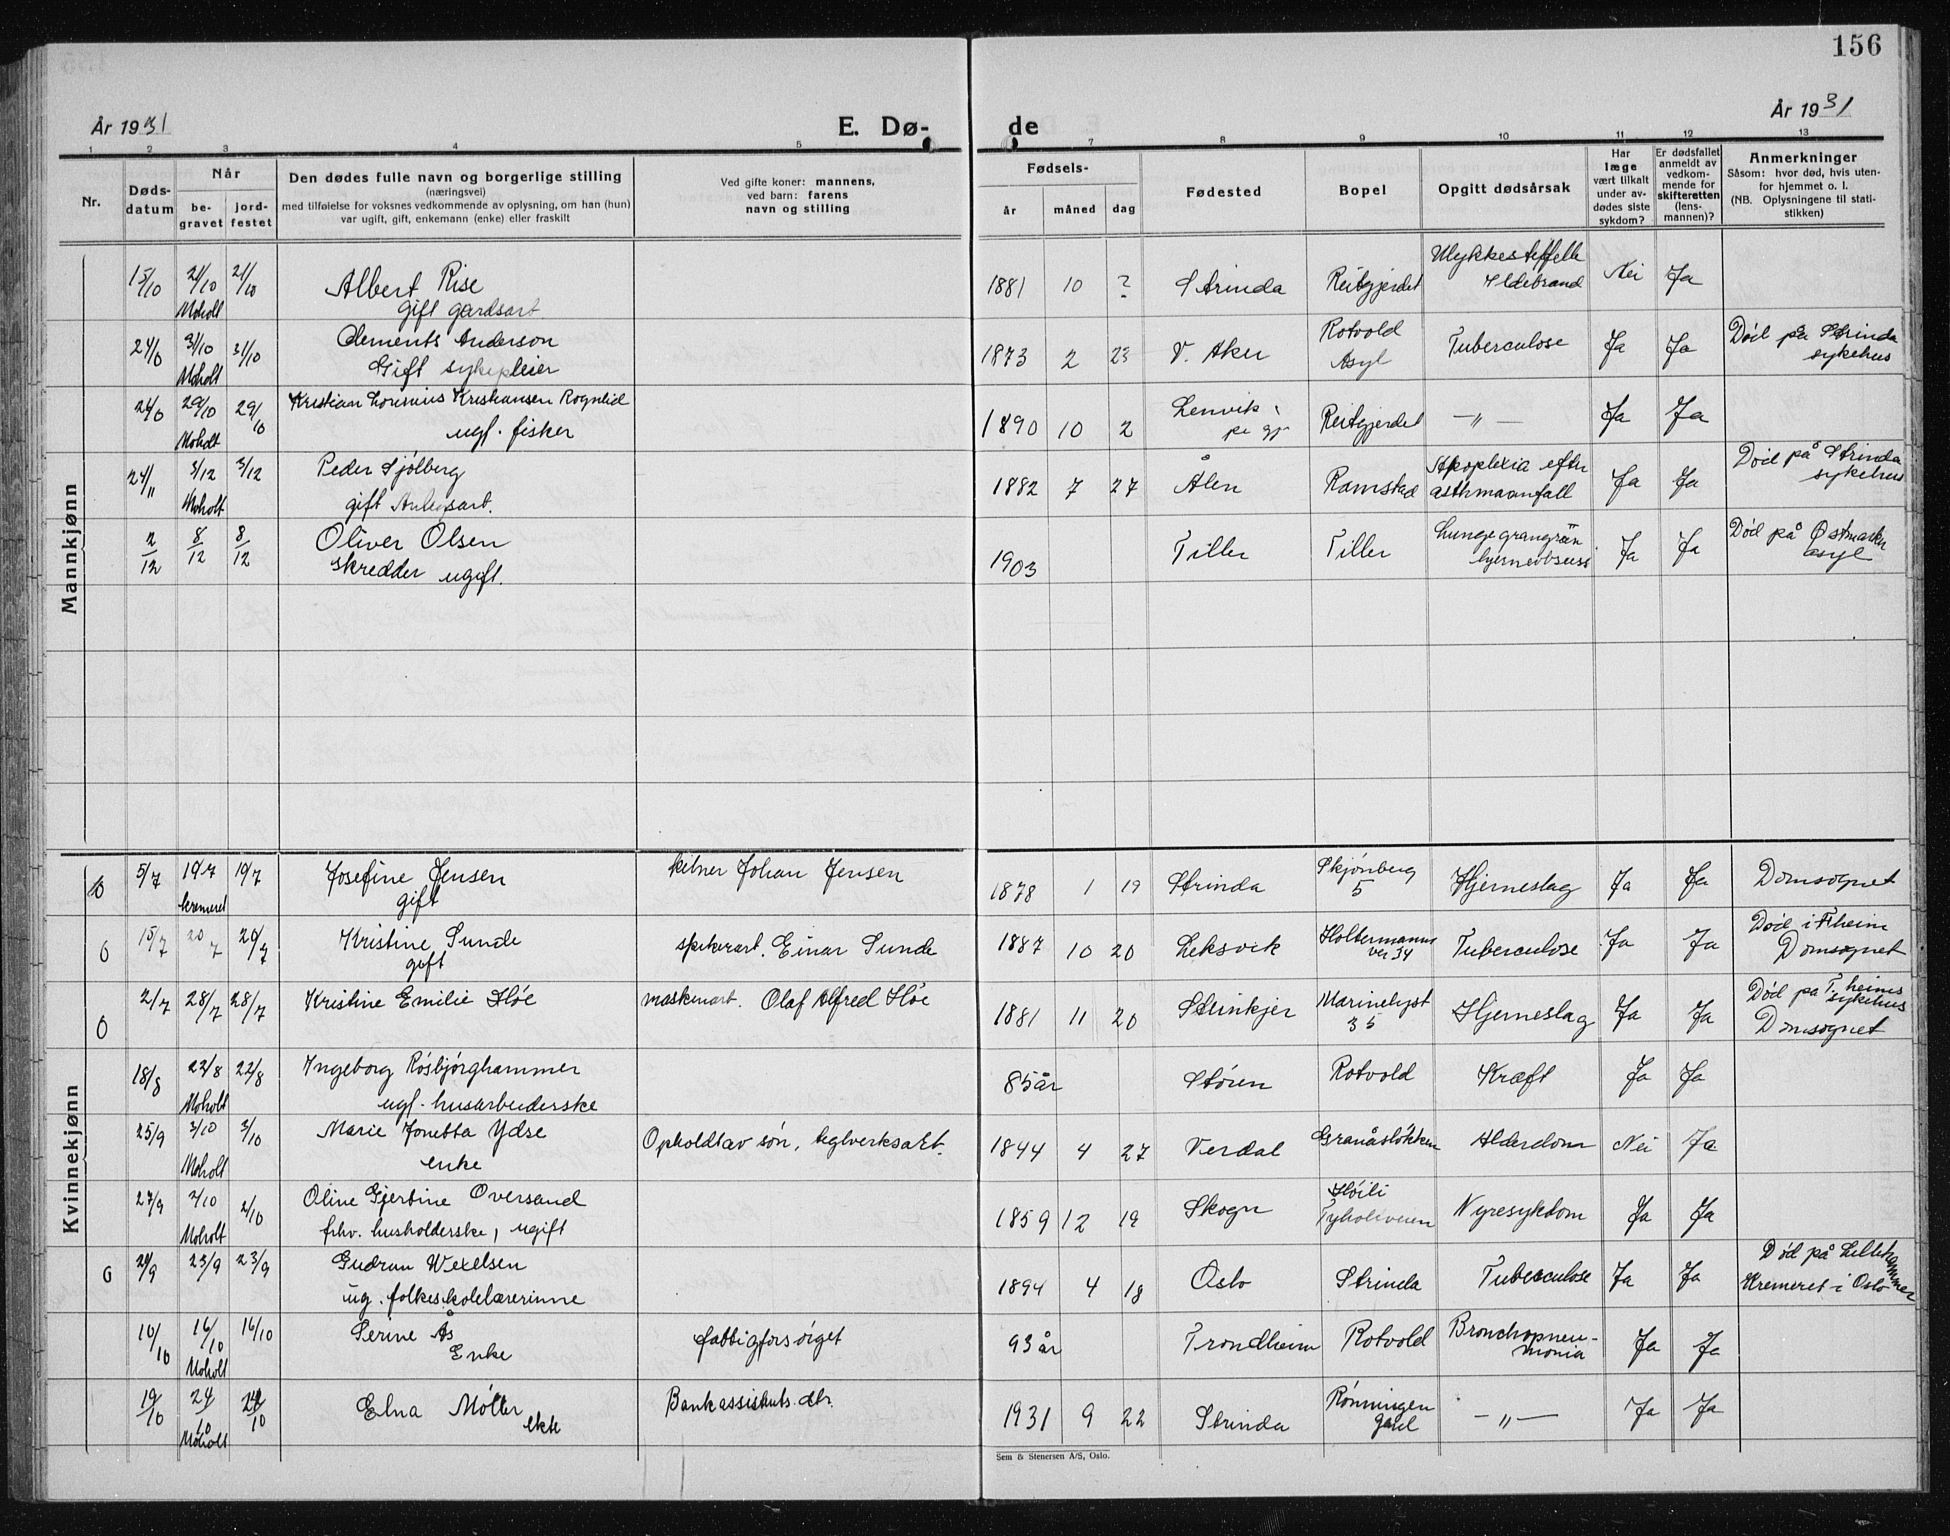 156
År 1931
E. Dø-
de
År 1931
1 2 3 4 5 7 8 9 10 11 12 13
Nr.
Døds-
datum
Når
be-
gravet
jord-
festet
Den dødes fulle navn og borgerlige stilling
(næringsvei)
med tilføielse for voksnes vedkommende av oplysning, om han (hun)
var ugift, gift, enkemann (enke) eller fraskilt
Ved gifte koner: mannens,
ved barn: farens
navn og stilling
Fødsels-
år måned dag
Fødested
Bopel
Opgitt dødsårsak
Har
læge
vært tilkalt
under av-
dødes siste
sykdom?
Er dødsfallet
anmeldt av
vedkom-
mende for
skifteretten
(lens-
mannen)?
Anmerkninger
Såsom: hvor død, hvis uten-
for hjemmet o. l.
(NB. Oplysningene til stati-
stikken)
Mannkjønn
15/10 21/10 21/10 Albert Rise 1881 10 ? Strinda Reitgjerdet Ildebrand Nei Ja
Moholt gift gardsart
24/10 31/10 31/10 Clements Anderson 1873 2 23 V. Aker Rotvold Tuberculose Ja Ja Død på Strinda
Moholt Gift sykepleier Asyl sykehus
24/10 29/10 29/10 Kristian Kristiansen Rognlid 1890 10 2 Lenvik Reitgjerdet —„— Ja Ja
Moholt ugf. fisker
24/11 3/12 3/12 Peder Sjölberg 1882 7 27 Ålen Ramstad Apoplexia efter Ja Ja Død på Strinda
Moholt gift asthmaanfall sykehus
2/12 8/12 8/12 Oliver Olsen 1903 Tiller Tiller Ja Ja Død på Østmarken
skredder ugift. asyl
Kvinnekjønn
5/7 19/7 19/7 Josefine Jensen kelner Johan Jensen 1878 1 19 Strinda Skjønberg 5 Hjerneslag Ja Ja Domsognet
kremeret gift
O 15/7 20/7 20/7 Kristine Sunde Einar Sunde 1887 10 20 Leksvik Holtermanns Tuberculose Ja Ja Død i T.heim
gift vei 34 Domsognet
O 2/7 28/7 28/7 Kristine Emilie Høe maskinart. Olaf Alfred Høe 1881 11 20 Steinkjer Marinelyst 35 Hjerneslag Ja Ja Død på T.heims sykehus
Domsognet
18/8 22/8 22/8 Ingeborg Rösbjörghammer 85 år Støren Rotvold Kræft Ja Ja
Moholt ugf. husarbeiderske
25/9 3/10 3/10 Marie Jonetta Ydse Opholdt av søn, teglverksart. 1844 4 27 Verdal Granåsløkken Alderdom Nei Ja
Moholt enke
27/9 2/10 2/10 Oline Gjertine Oversand 1859 12 19 Skogn Høili Tyholtveien Nyresykdom Ja Ja
Moholt frhv. husholderske, ugift
O 23/9 23/9 Gudrun Wexelsen 1894 4 18 Oslo Strinda Tuberculose Ja Ja Død på Lillehammer
ug. folkeskolelærerinne Kremeret i Oslo
10/10 16/10 16/10 Serine Ås fattigforsörget 93 år Trondheim Rotvold Bronchopneu- Ja Ja
Moholt Enke monia
19/10 24/10 24/10 Elna Möller Bankassistents dtr. 1931 9 22 Strinda Rønningen —„— Ja Ja
Moholt ekte gård
Sem & Stenersen A/S, Oslo.